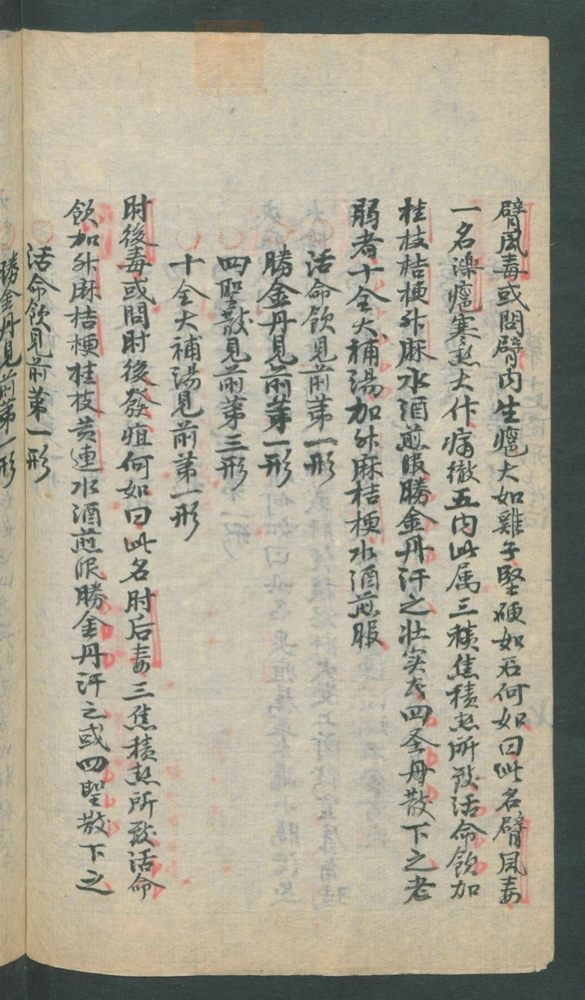 臂风毒或問臂内生瘡大如雞子堅硬如石何如曰此名臂风毒
一名瘡寒热大作痛徹五内此属三焦積热所致活命飲加
桂枝桔梗升麻水酒煎服勝金丹汗之壮实者四圣散下之老
弱者十全大補湯加升麻桔梗水酒煎服
活命飲見前第一形
勝金丹見前第一形
四聖散見前第三形
十全大補湯見前第一形
肘後毒或問肘後發疽何如曰此名肘后毒三焦積热所致活命
飲加升麻桔梗桂枝黄連水酒煎服勝金丹汗之或四聖散下之
活命飲見前第一形
勝金丹見前第一形